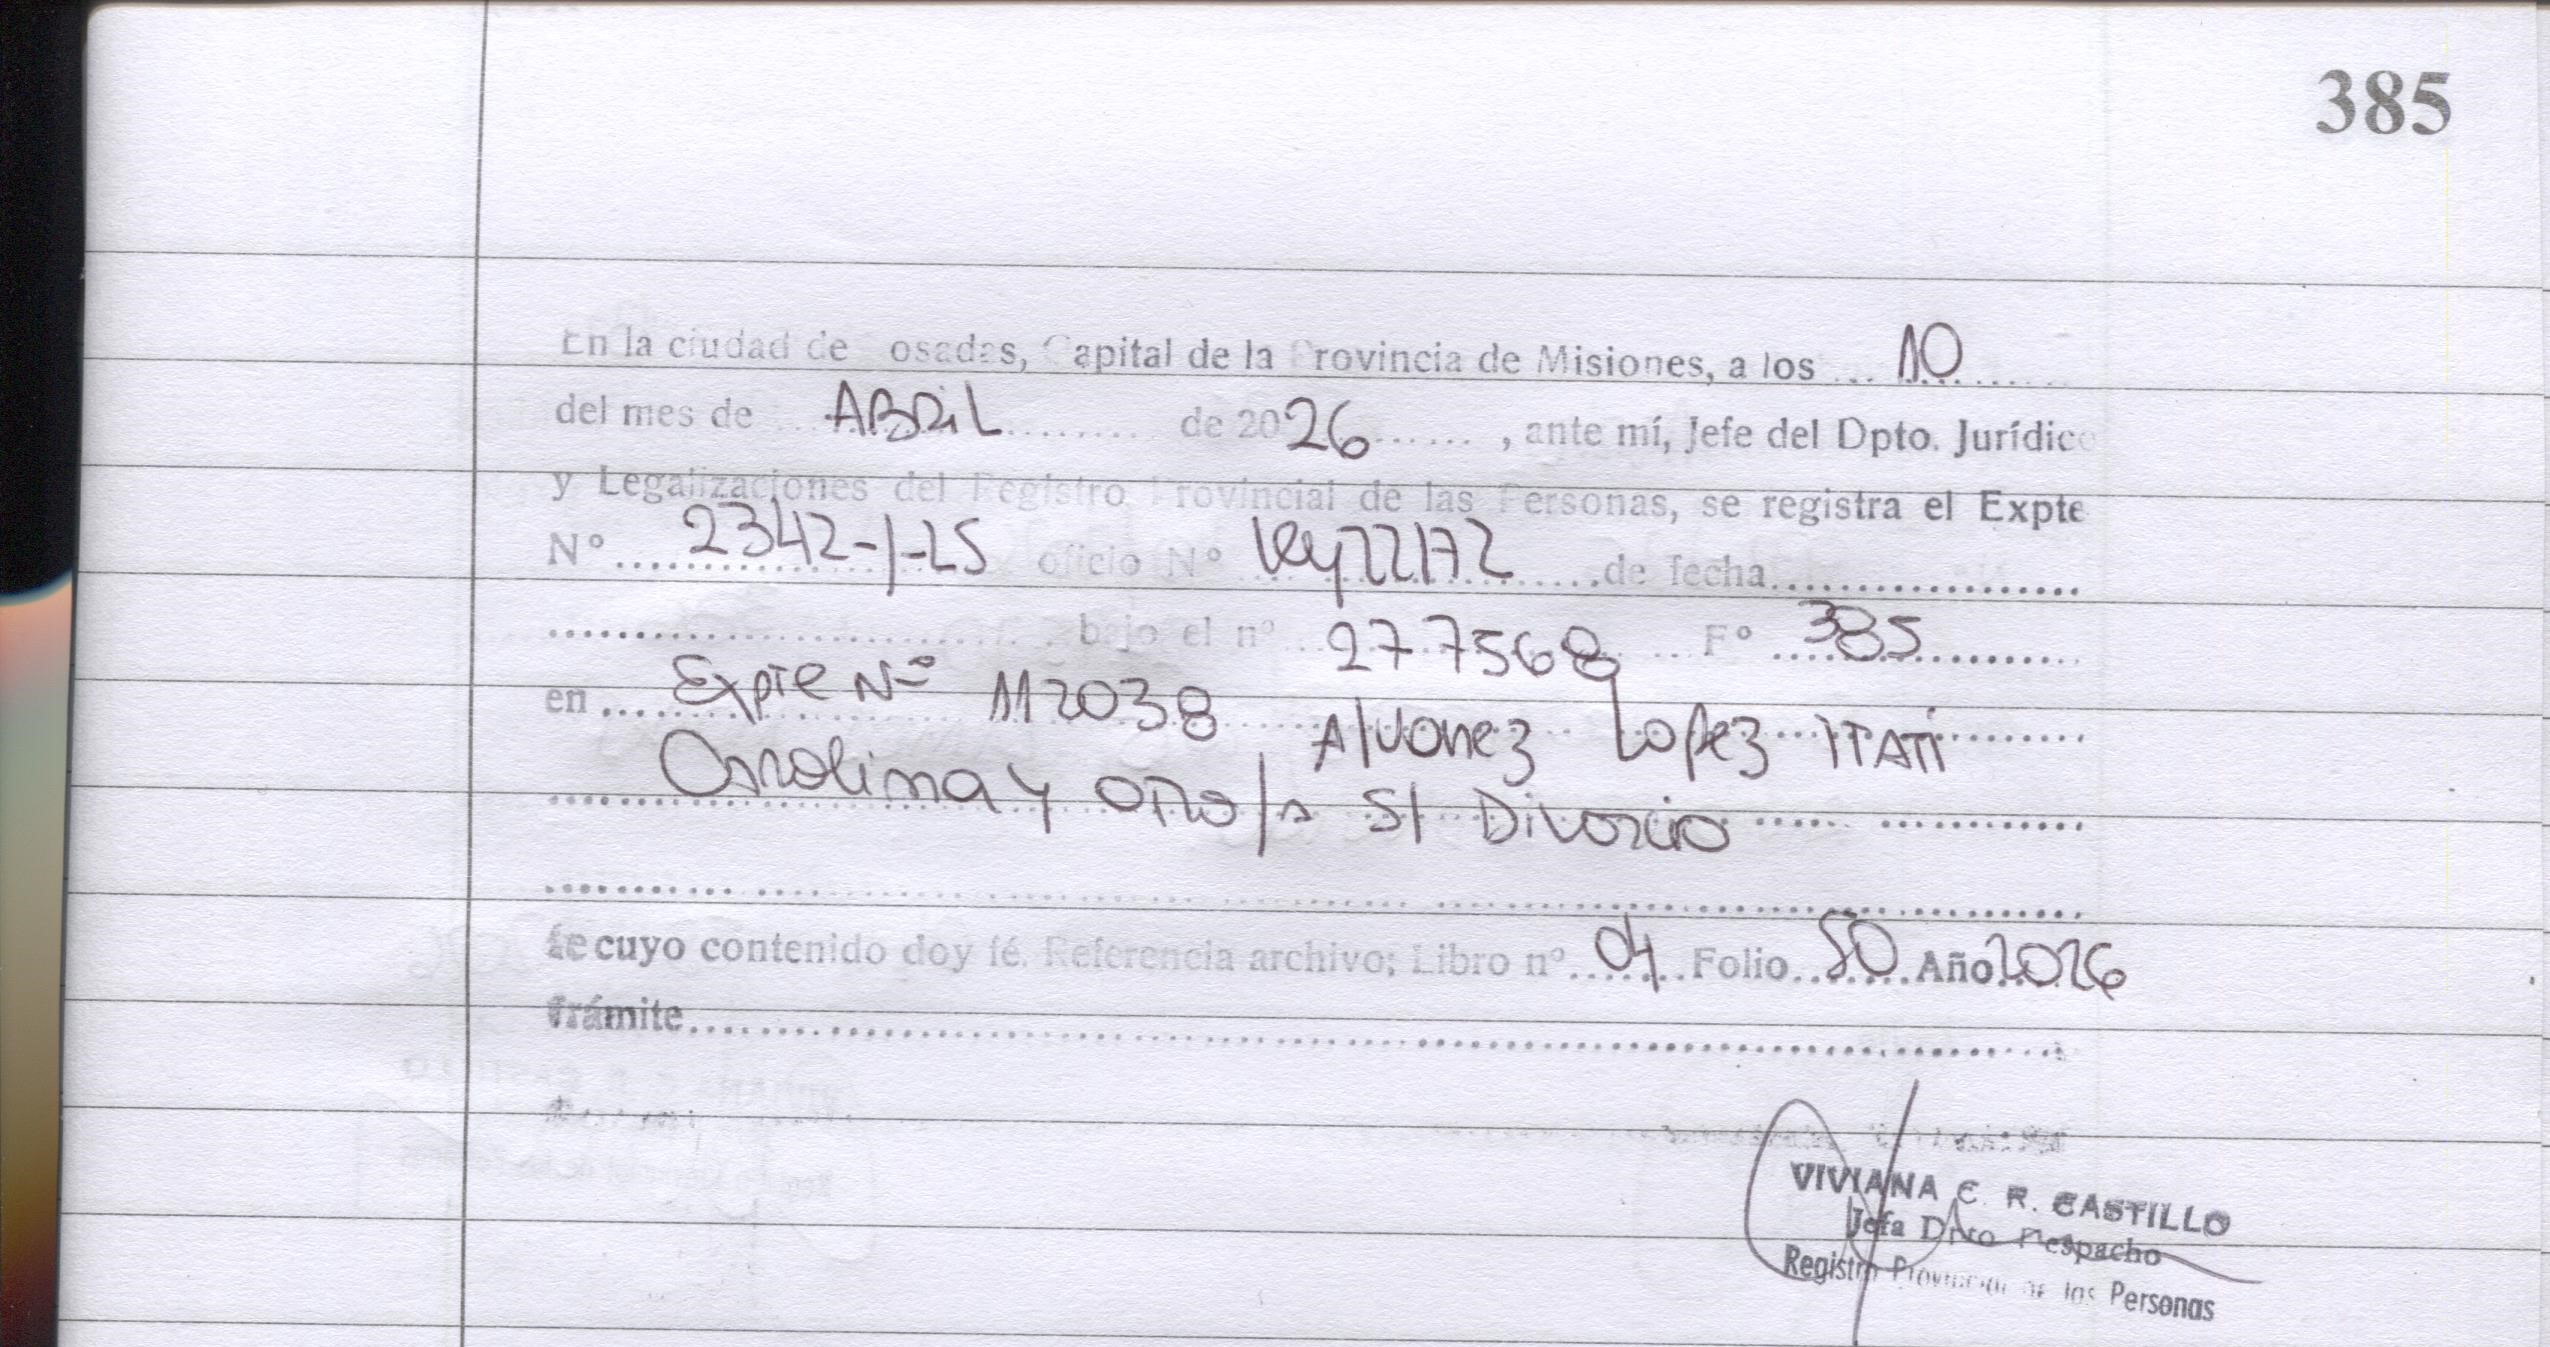 385
En la ciudad de osadas, Capital de la Provincia de Misiones, a los ... 10
del mes de ABRIL de 2026 ......, ante mí, Jefe del Dpto. Jurídico
y Legalizaciones del Registro Provincial de las Personas, se registra el Expte
Nº 2342-1-LS oficio Nº Ley 22172 de fecha
bajo el nº 277568 Fº 385
en Expte Nº 112038 Alvarez Lopez ITATÍ
Carolina y otro/a S/ Divorcio
de cuyo contenido doy fé. Referencia archivo: Libro nº 04 Folio 50 Año 2026
Trámite
VIVIANA C. R. CASTILLO
Jefa Dpto Despacho
Registro Provincial de las Personas